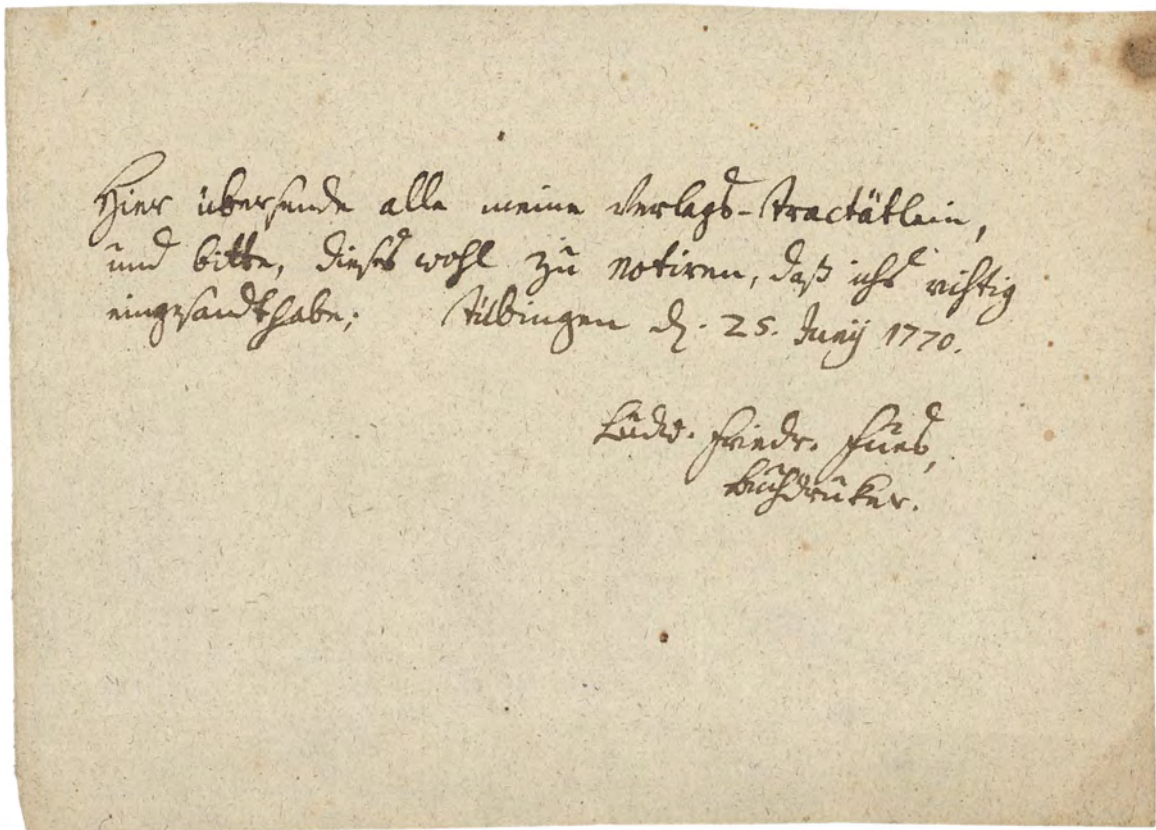 Hier übersende alle meine Verlags-Tractätlein,
und bitte, dieses wohl zu notiren, daß ichs richtig
eingesandt habe; Tübingen d. 25. Junij 1770.
Ludw. Friedr. Fues,
Buchdruker.